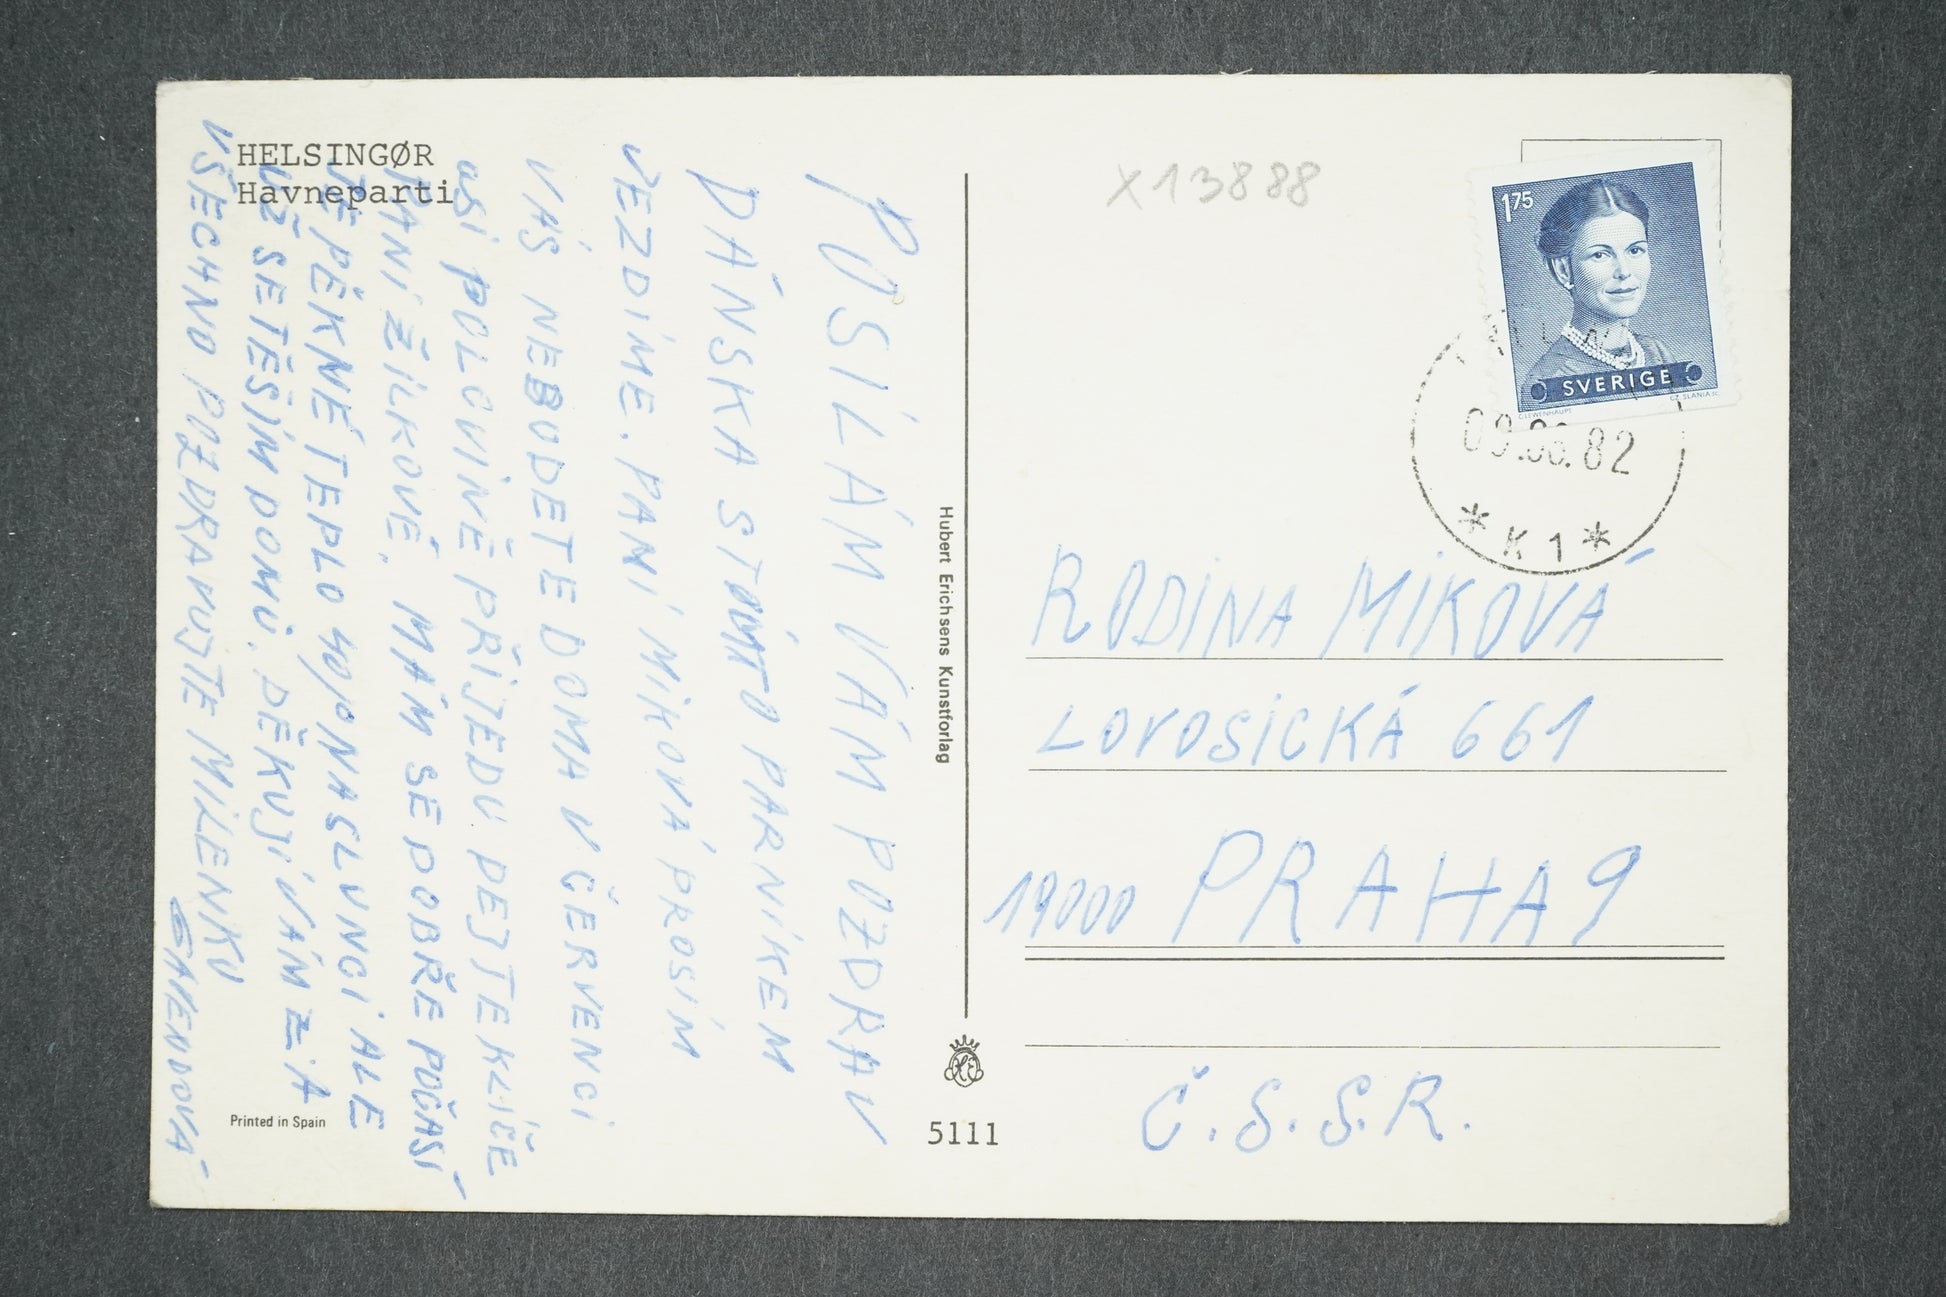 HELSINGØR
Havneparti
POSÍLÁM VÁM POZDRAV
DÁNSKA S TOUTO PARNÍKEM
JEZDÍME. PANÍ MIKOVÁ PROSÍM
VÁS NEBUDETE DOMA V ČERVENCI
ASI POLOVINĚ PŘIJEDU DEJTE KLÍČE
PANÍ ŽILKOVÉ. MÁM SE DOBŘE POČASÍ
JE PĚKNÉ TEPLO 40 NA SLUNCI ALE
UŽ SE TĚŠÍM DOMŮ. DĚKUJI VÁM ZIA
VŠECHNO POZDRAVUJTE MILENKU
Hubert Erichsens Kunstforlag
Printed in Spain
5111
X13888
175
SVERIGE
C. LEWENHAUPT
CZ. SLANIA SC.
82
* K 1 *
RODINA MIKOVÁ
LOVOSICKÁ 661
19000 PRAHA 9
Č.S.S.R.